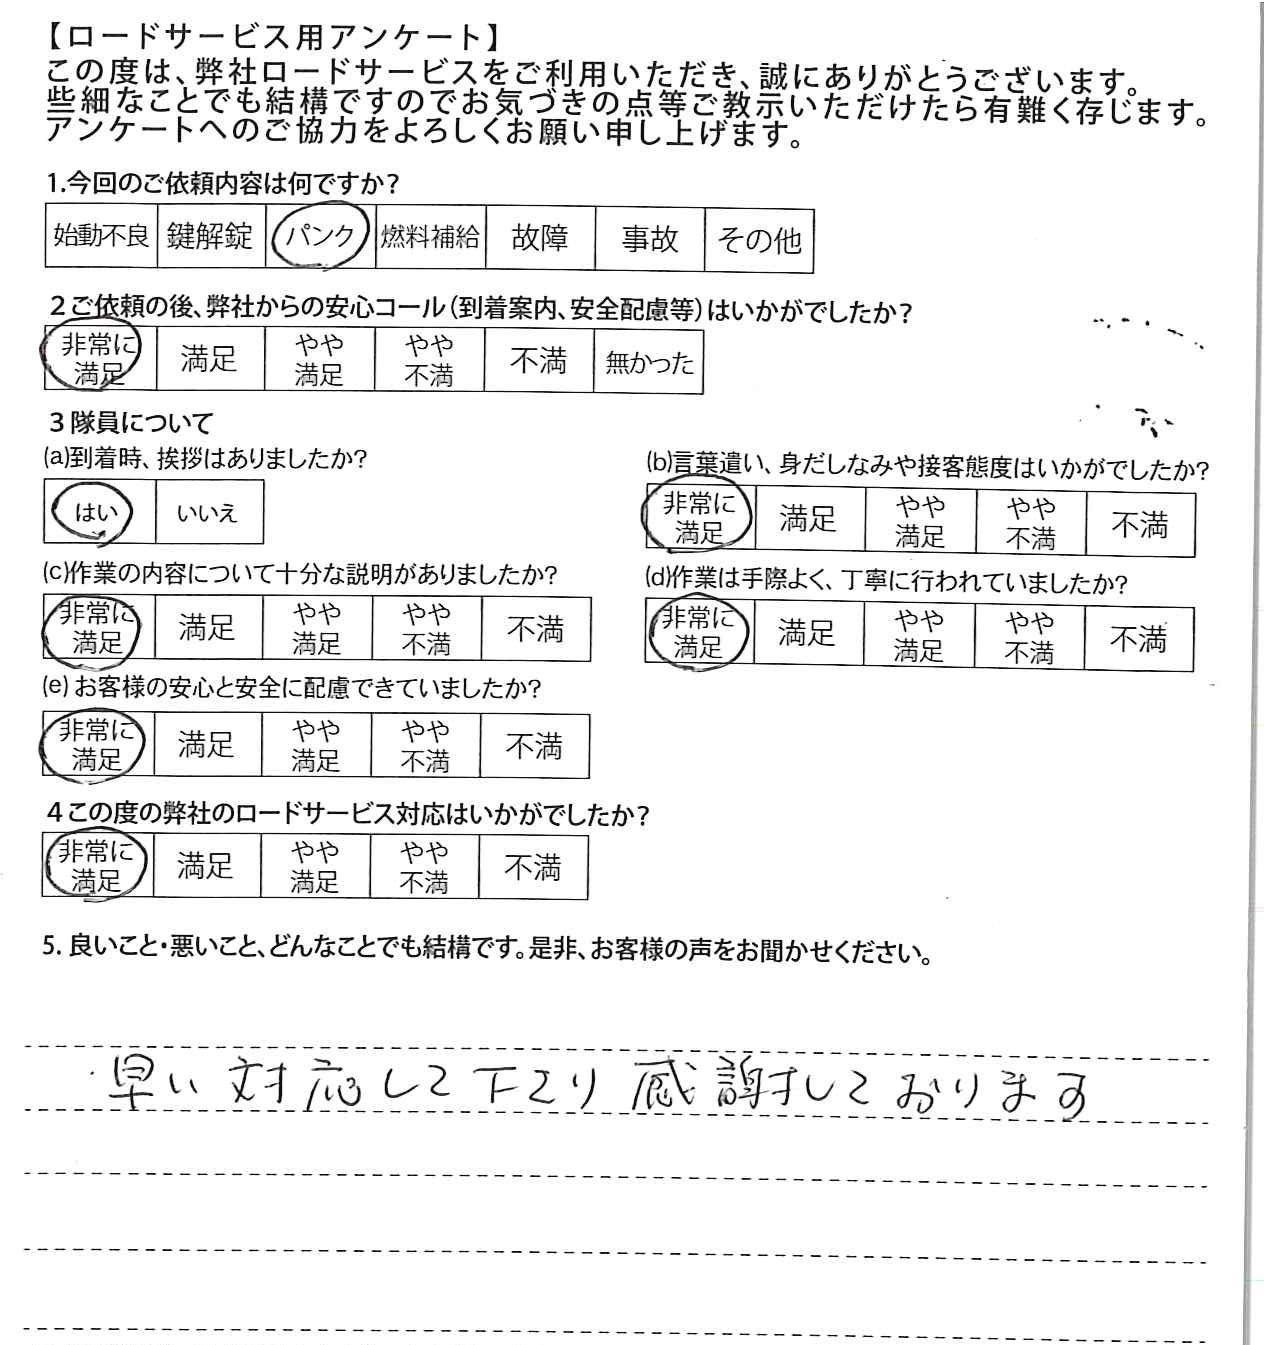 【ロードサービス用アンケート】
この度は、弊社ロードサービスをご利用いただき、誠にありがとうございます。
些細なことでも結構ですのでお気づきの点等ご教示いただけたら有難く存じます。
アンケートへのご協力をよろしくお願い申し上げます。
1.今回のご依頼内容は何ですか?
始動不良 鍵解錠 パンク 燃料補給 故障 事故 その他
2ご依頼の後、弊社からの安心コール(到着案内、安全配慮等)はいかがでしたか?
非常に満足 満足 やや満足 やや不満 不満 無かった
3隊員について
(a)到着時、挨拶はありましたか?
はい いいえ
(b)言葉遣い、身だしなみや接客態度はいかがでしたか?
非常に満足 満足 やや満足 やや不満 不満
(c)作業の内容について十分な説明がありましたか?
非常に満足 満足 やや満足 やや不満 不満
(d)作業は手際よく、丁寧に行われていましたか?
非常に満足 満足 やや満足 やや不満 不満
(e)お客様の安心と安全に配慮できていましたか?
非常に満足 満足 やや満足 やや不満 不満
4この度の弊社のロードサービス対応はいかがでしたか?
非常に満足 満足 やや満足 やや不満 不満
5. 良いこと・悪いこと、どんなことでも結構です。是非、お客様の声をお聞かせください。
早い対応して下さり感謝しております